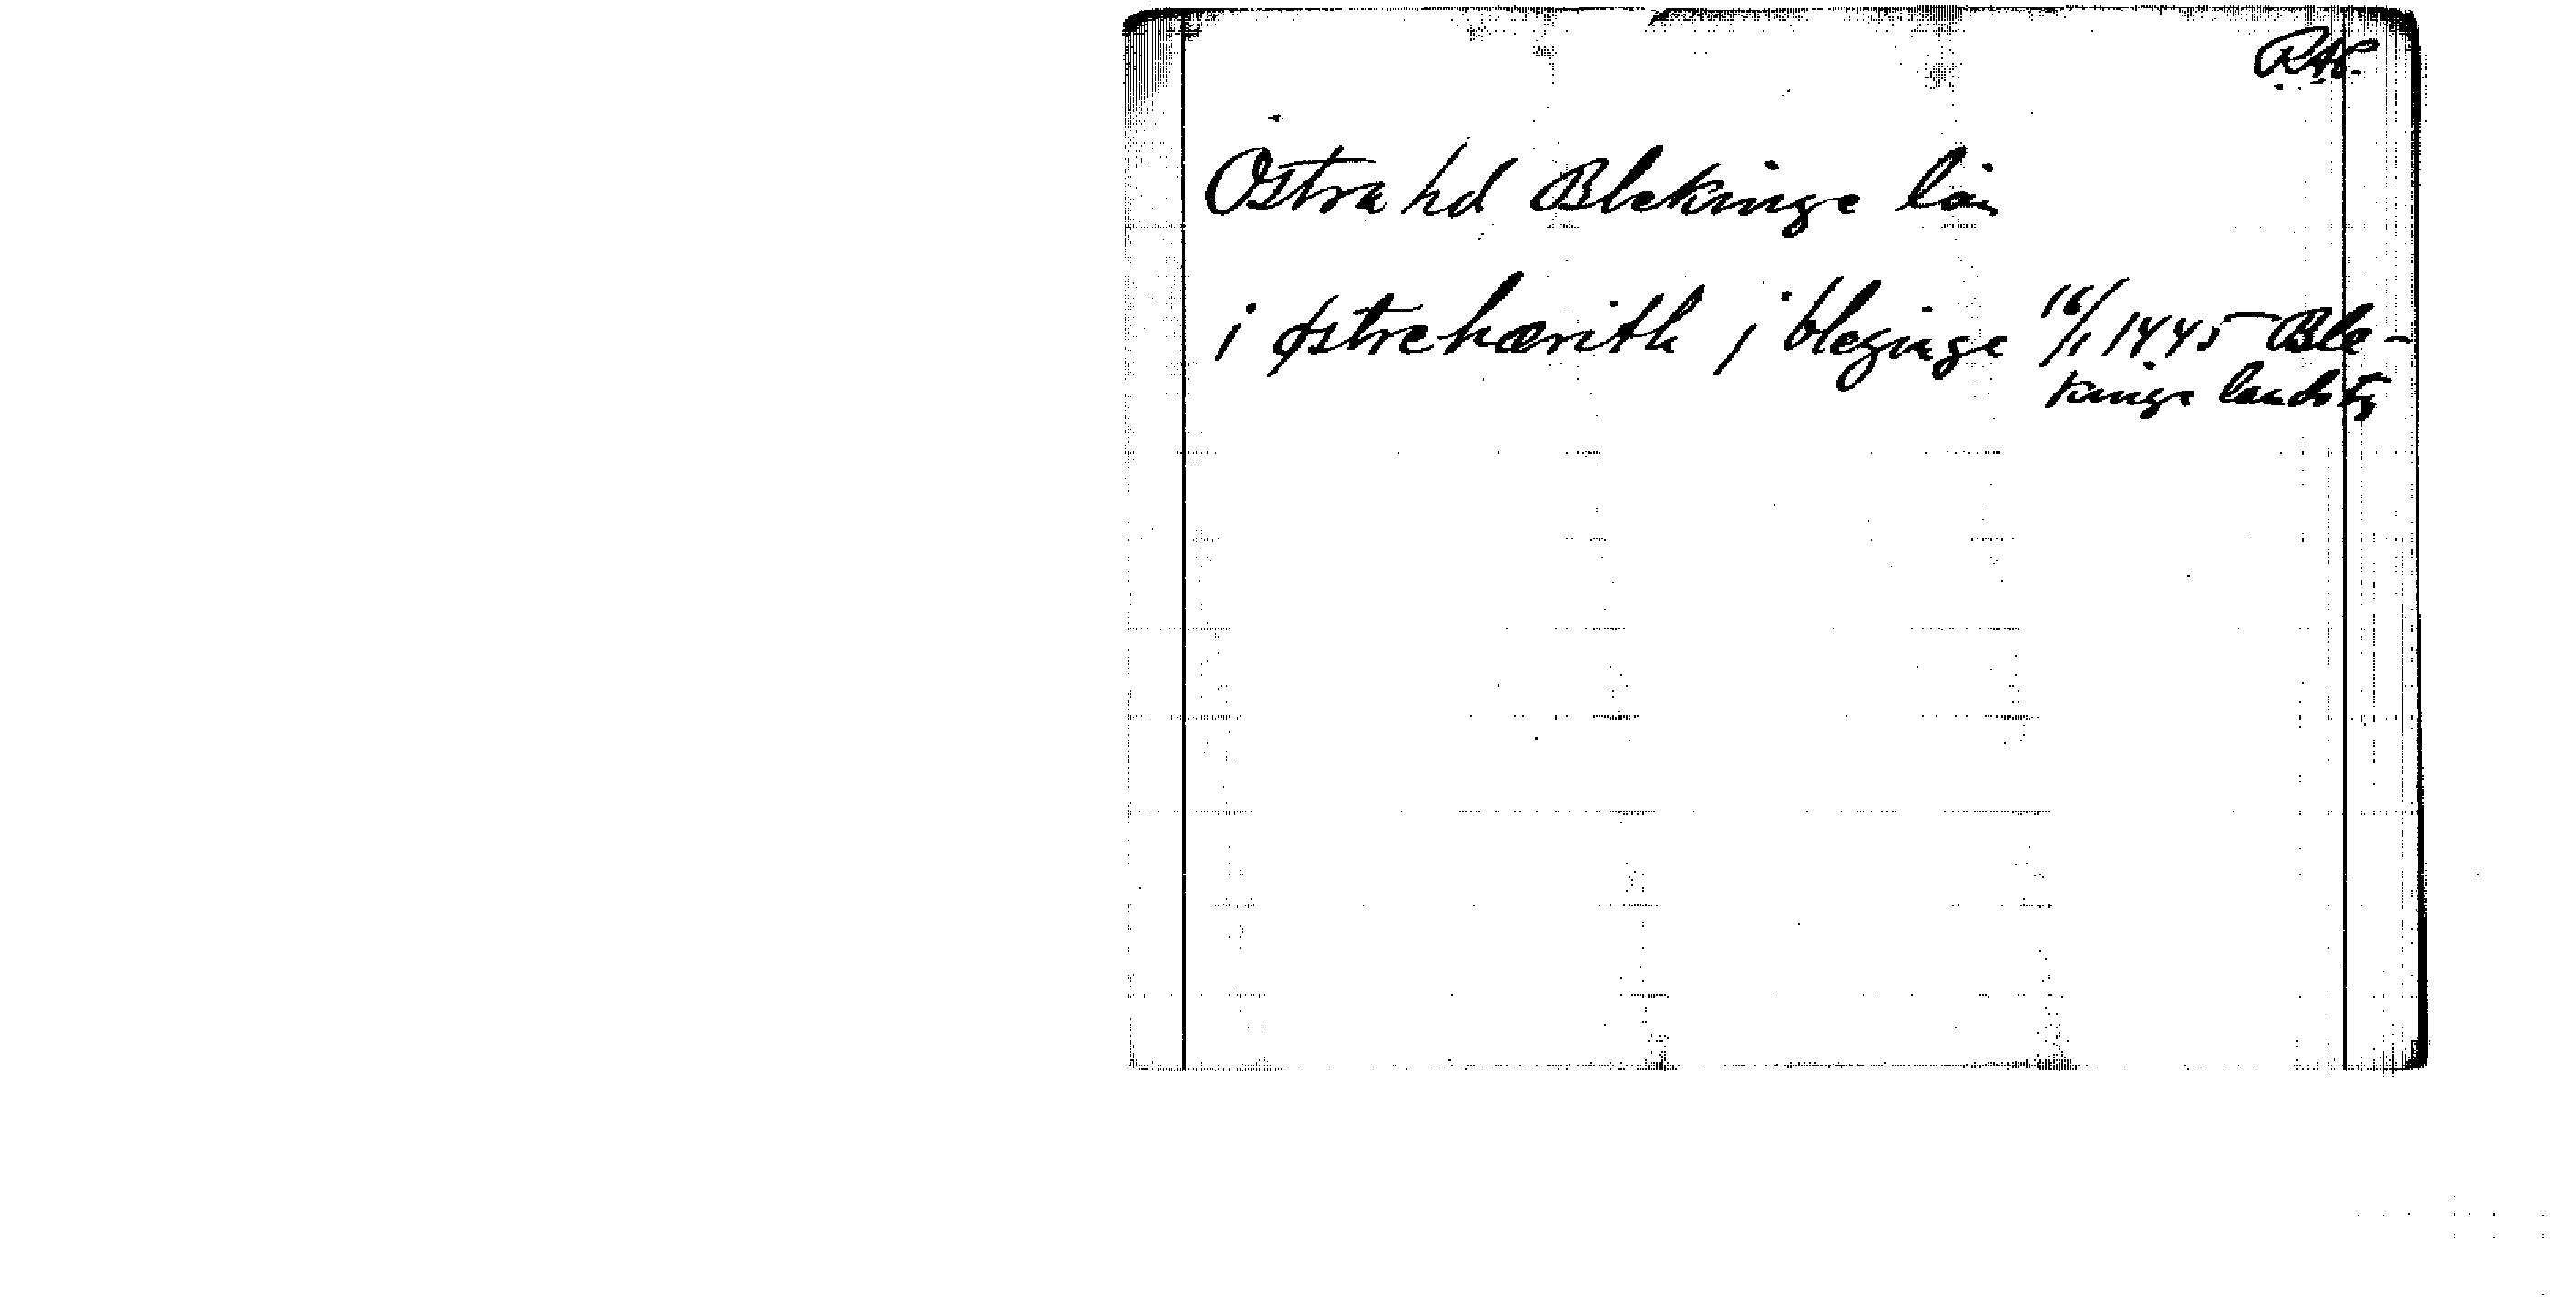 RAK
Östra hd Blekinge län
i østrehærith j bleginge 16/1 1445 Ble-
kinge landstg